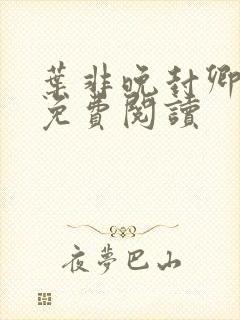 葉非晚封卿
免費閱讀
夜夢巴山